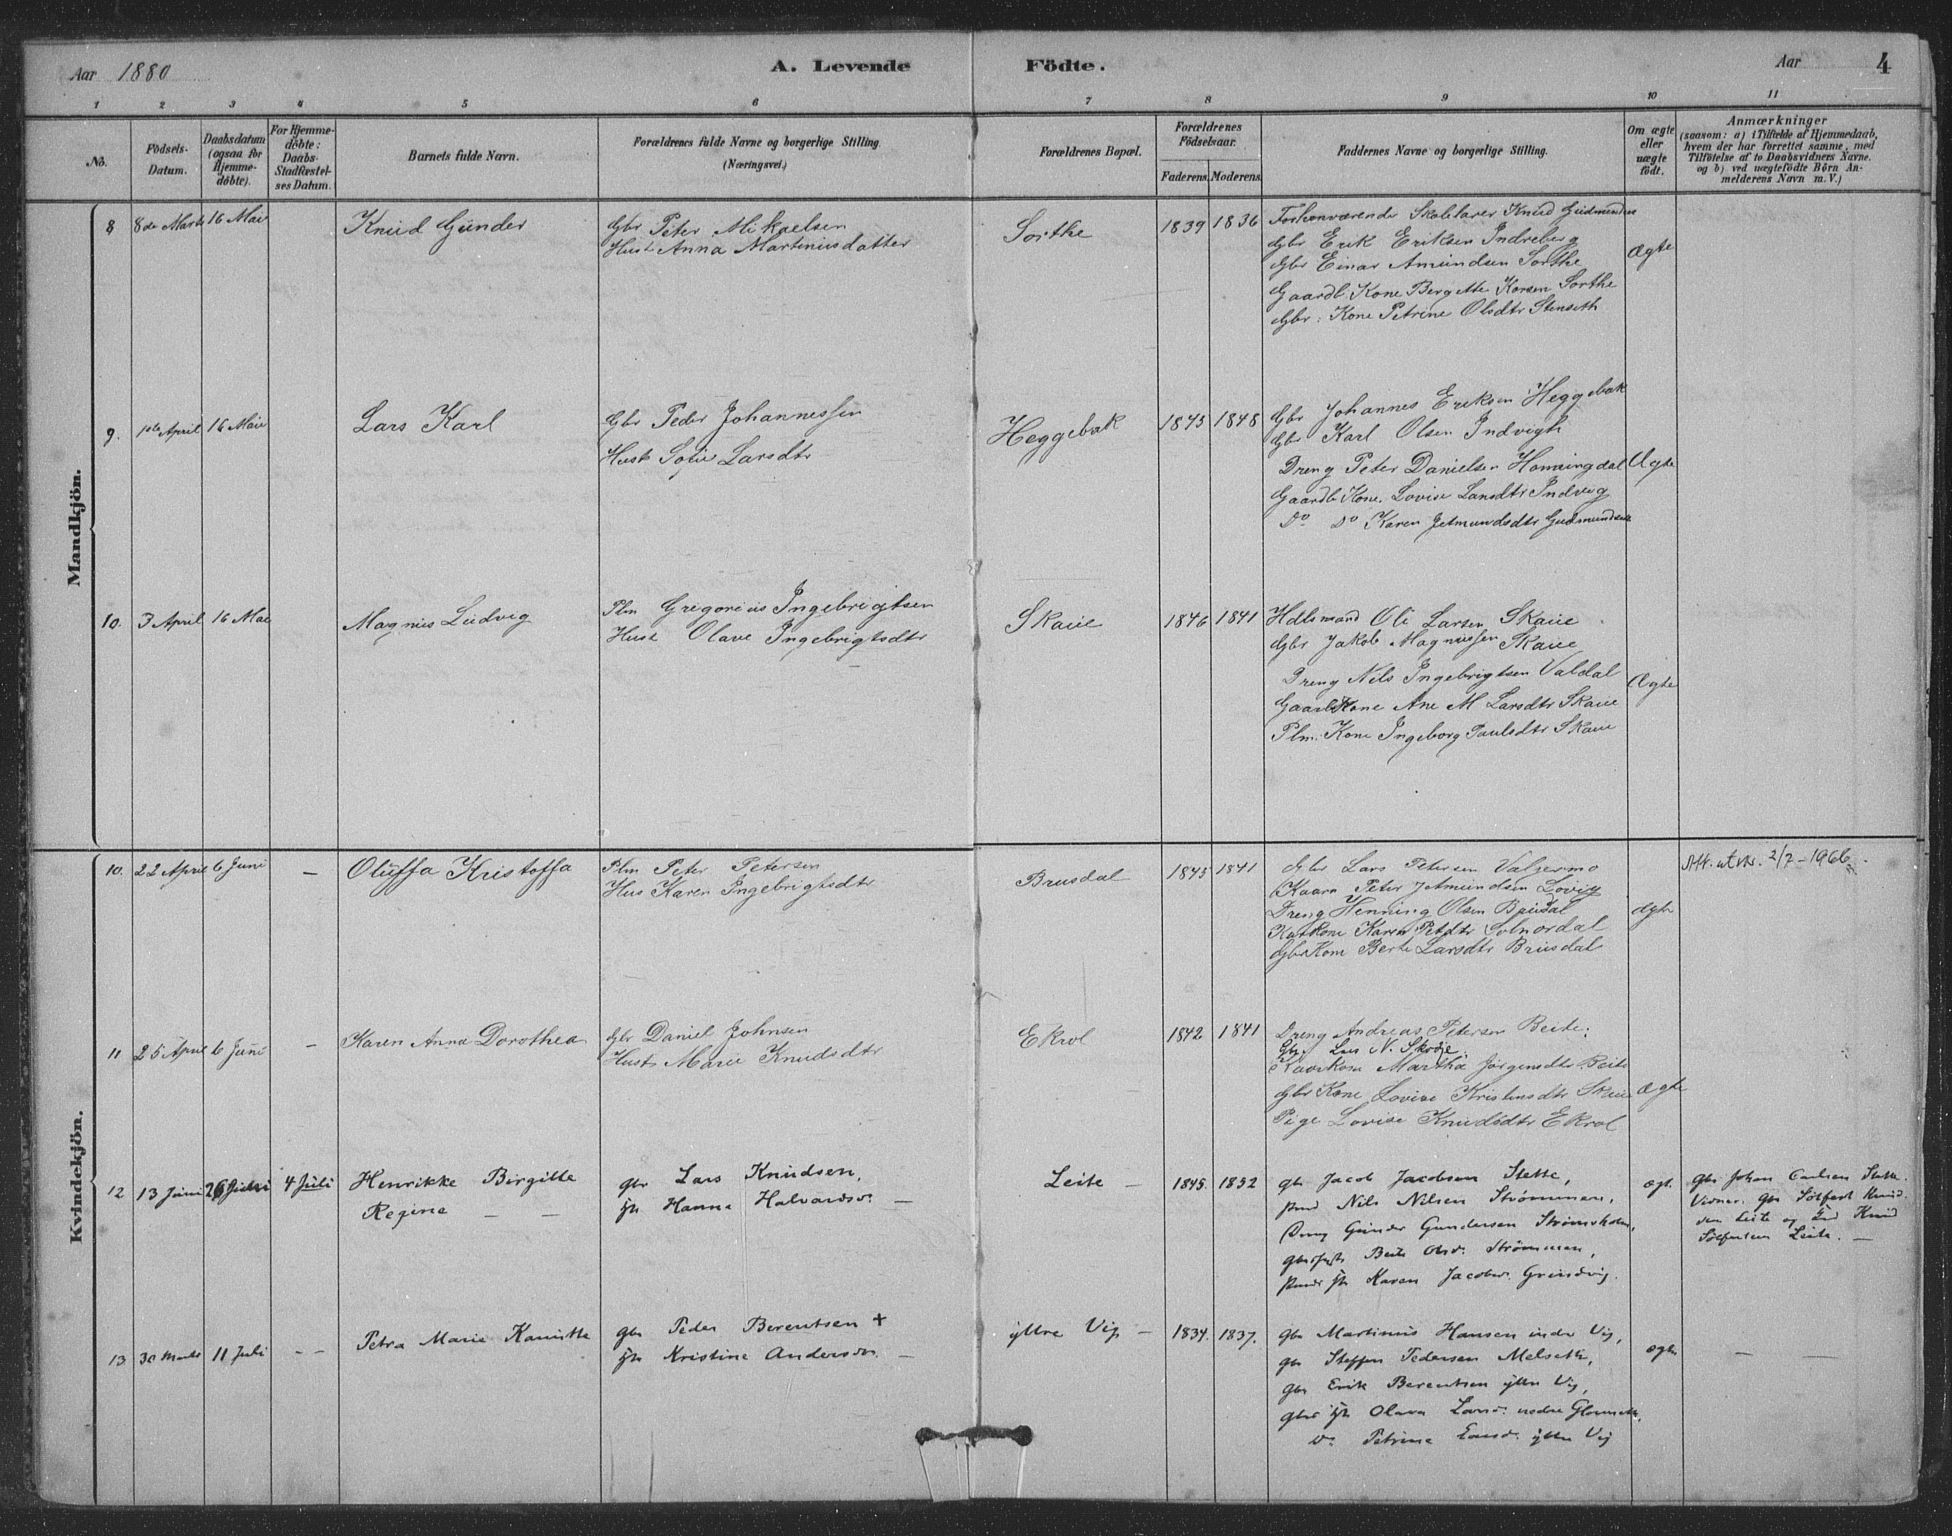 Aar 1880 A. Levende Födte. Aar 4
1 2 3 4 5 6 7 8 9 10 11
No.
Födsels-
Datum.
Daabsdatum
(ogsaa for
Hjemme-
döbte).
For Hjemme-
döbte:
Daabs-
Stadfæstel-
ses Datum.
Barnets fulde Navn.
Forældrenes fulde Navne og borgerlige Stilling
(Næringsvei.)
Forældrenes Bopæl.
Forældrenes
Födselsaar.
Faderens. Moderens.
Faddernes Navne og borgerlige Stilling.
Om ægte
eller
uægte
födt.
Anmærkninger
(saasom: a) i Tilfælde af Hjemmedaab,
hvem der har forrettet samme, med
Tilföielse af to Daabsvidners Navne.
og b) ved uægtefödte Börn An-
melderens Navn m. V.)
Mandkjön.
8 8de Marts 16 Mai
Knud Gunder
Gbr Peter Mikaelsen
Hust Anna Martinusdatter
Sorthe
1839 1836
Forhenværende Skolelærer Knud Gudmundse
Gbr Erik Eriksen Indreberg
Gbr Einar Amundsen Sorthe
Gaardb. Kone Bergette Korsen Sorthe
Gbr: Kone Petrine Olsdtr Stenseth
Ægte
9. 1ste April 16 Mai
Lars Karl
Gbr Peder Johannessen
Hust Sofie Larsdtr
Heggebak
1845 1848
Gbr Johannes Eriksen Heggebak
Gbr Karl Olsen Indvigh
Dreng Peter Danielsen Honningdal
Gaardb Kone. Lovise Larsdtr Indvig
Do Do Karen Jetmundsdtr Gudmundset
Ægte
10. 3 April 16 Mai
Magnus Ludvig
Plm Gregorius Ingebrigtsen
Hust Olave Ingebrigtsdtr
Skaue
1846 1841
Hdlsmand Ole Larsen Skaue
Gbr Jakob Magnussen Skaue
Dreng Nils Ingebrigtsen Valdal
Gaardb Kone Ane M Larsdtr Skaue
Plm: Kone Ingeborg Paulsdtr Skaue
Ægte
Kvindekjön.
10. 22 April 6 Juni –
Oluffa Kristoffa
Plm Peter Petersen
Hus Karen Ingebrigtsdtr
Brusdal
1845 1841
Gbr Lars Petersen Valgermo
Kaarm Peter Jetmundsen Lovig
Dreng Henning Olsen Brusdal
Kaarkone Karen Petdtr Solnordal
Gbr Kone Berte Larsdtr Brusdal
Ægte
Att. utskr. 2/7 – 1966.
11 25 April 6 Juni –
Karen Anna Dorothea
Gbr Daniel Johnsen
Hust Marie Knudsdtr
Ekrol
1842 1841
Dreng Andreas Petersen Beite.
Gbr Lars N. Skrøje.
Kaarkone Martha Jørgensdtr Beite
Gbr Kone Lovise Kristensdtr Skaue
Pige Lovise Knudsdtr Ekrol
Ægte
12 13 Juni 26 Juni 4 Juli
Henrikke Birgitte
Regine – –
gbr Lars Knudsen,
Hanna Halvardsdr. –
Leite –
1845. 1832
gbr Jacob Jacobsen Stette,
Nils Nilsen Strømmen,
Dreng Gunder Gundersen Strømsholm,
Berte Olsdr. Strømmen,
Karen Jacobsdr. Grindvig.
ægt.
gbr Johan Carlsen Stette.
Vidner. gbr Sølfest Knud-
sen Leite og Knud
Sølfestsen Leite. –
13 30 Marts 11 Juli – –
Petra Marie Kamitta
gbr Peder Berentsen +
Kristine Andersdr. –
ytre Vig –
1834. 1837.
gbr Martinus Hansen indre Vig,
gbr Steffen Pedersen Melseth,
gbr Erik Berentsen ytre Vig,
Olava Larsd. nedre
Do Petrine Larsd. ytre Vig
ægte
– –